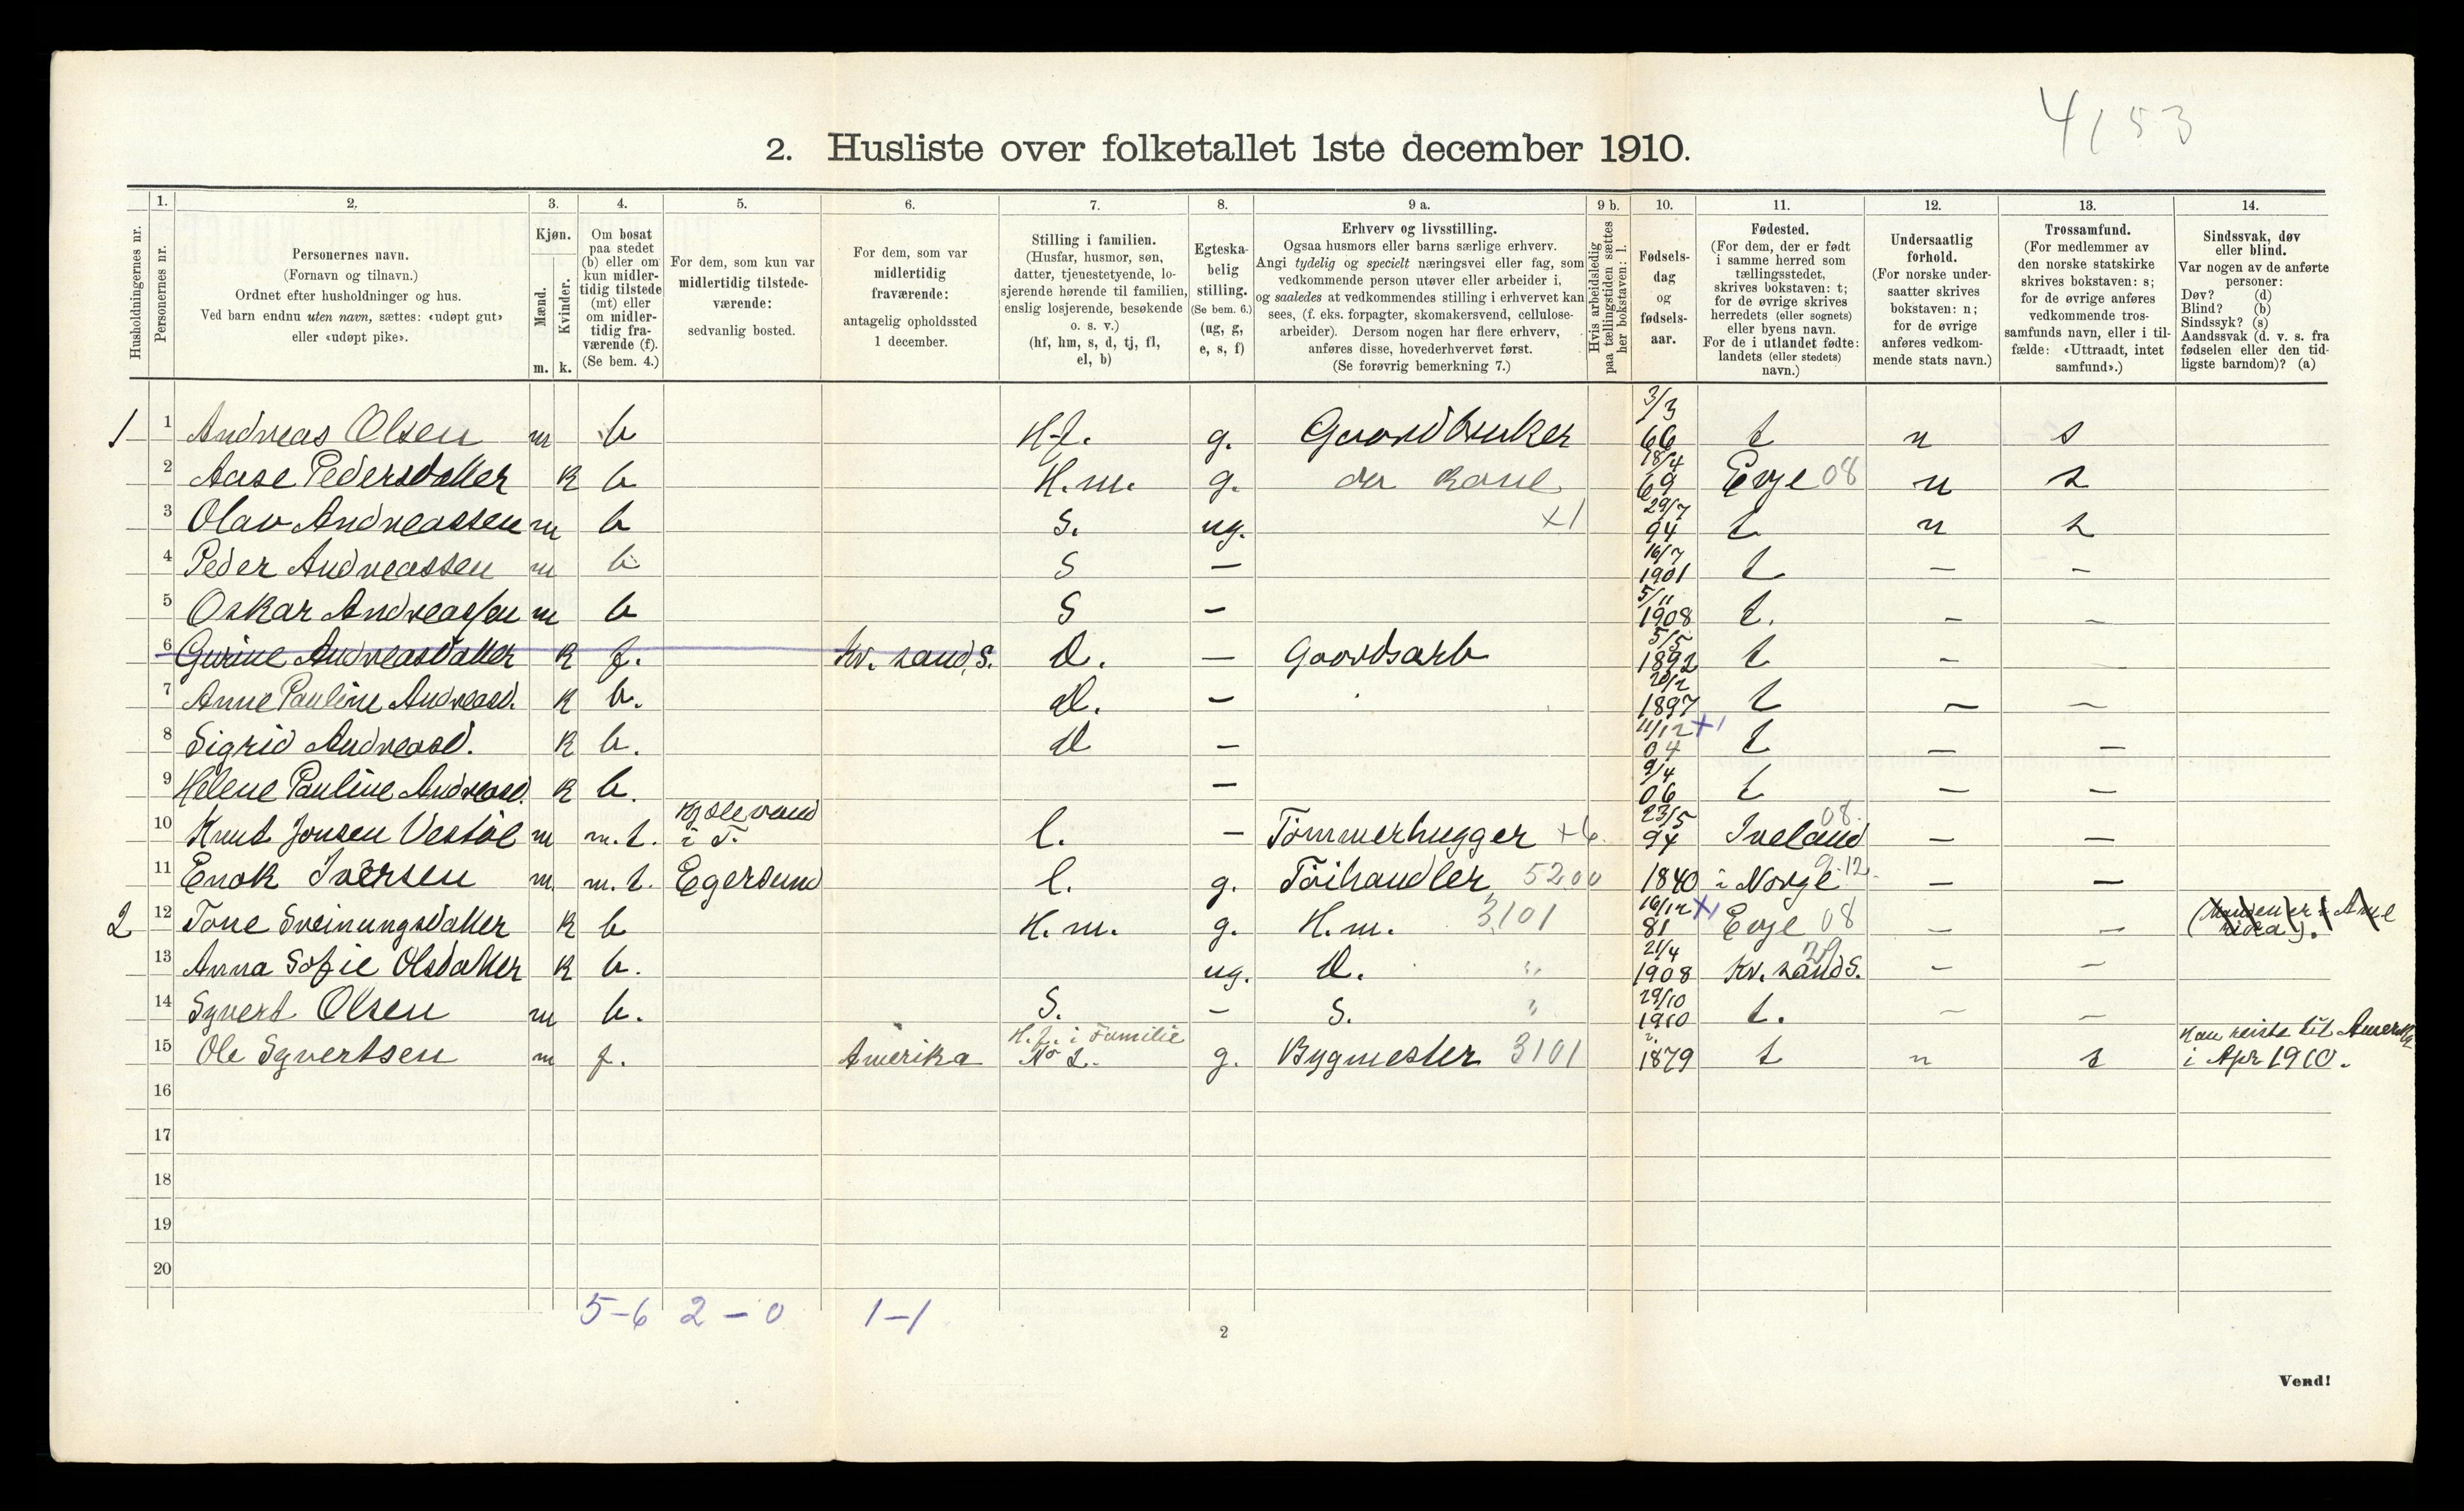 4/53
2. Husliste over folketallet 1ste december 1910.
Husholdningernes nr.
1. Personernes nr.
2. Personernes navn. (Fornavn og tilnavn.) Ordnet efter husholdninger og hus. Ved barn endnu uten navn, sættes: «udøpt gut» eller «udøpt pike».
3. Kjøn. Mænd. Kvinder. m. k.
4. Om bosat paa stedet (b) eller om kun midlertidig tilstede (mt) eller om midlertidig fraværende (f). (Se bem. 4.)
5. For dem, som kun var midlertidig tilstedeværende: sedvanlig bosted.
6. For dem, som var midlertidig fraværende: antagelig opholdssted 1 december.
7. Stilling i familien. (Husfar, husmor, søn, datter, tjenestetyende, losjerende hørende til familien, enslig losjerende, besøkende o. s. v.) (hf, hm, s, d, tj, fl, el, b)
8. Egteskabelig stilling. (Se bem. 6.) (ug, g, e, s, f)
9 a. Erhverv og livsstilling. Ogsaa husmors eller barns særlige erhverv. Angi tydelig og specielt næringsvei eller fag, som vedkommende person utøver eller arbeider i, og saaledes at vedkommendes stilling i erhvervet kan sees, (f. eks. forpagter, skomakersvend, cellulosearbeider). Dersom nogen har flere erhverv, anføres disse, hovederhvervet først. (Se forøvrig bemerkning 7.)
9 b. Hvis arbeidsledig paa tællingstiden sættes her bokstaven: l.
10. Fødselsdag og fødselsaar.
11. Fødested. (For dem, der er født i samme herred som tællingsstedet, skrives bokstaven: t; for de øvrige skrives herredets (eller sognets) eller byens navn. For de i utlandet fødte: landets (eller stedets) navn.)
12. Undersaatlig forhold. (For norske undersaatter skrives bokstaven: n; for de øvrige anføres vedkommende stats navn.)
13. Trossamfund. (For medlemmer av den norske statskirke skrives bokstaven: s; for de øvrige anføres vedkommende trossamfunds navn, eller i tilfælde: «Uttraadt, intet samfund».)
14. Sindssvak, døv eller blind. Var nogen av de anførte personer: Døv? (d) Blind? (b) Sindssyk? (s) Aandssvak (d. v. s. fra fødselen eller den tidligste barndom)? (a)
1 1 Andreas Olsen m b H.f. g. Gaardbruker 3/3 66 t n s
2 Aase Pedersdatter K b H.m. g. der kone 18/4 69 Evje 08 n s
3 Olav Andreassen m b S. ug. x1 29/7 94 t n s
4 Peder Andreassen m b S – 16/7 1901 t – –
5 Oskar Andreassen m b S – 5/11 1908 t. – –
6 Gurine Andreasdatter K f. Kv. sand, S. D. – Gaardsarb 5/5 1892 t – –
7 Anne Pauline Andreasd. K b. D. – 20/2 1897 t – –
8 Sigrid Andreasd. K b. D – 11/12 04 x1 t – –
9 Helene Pauline Andreasd. K b. – 9/4 06 t – –
10 Knut Jonsen Vestøl m m.t. Kjølevand i T. l. – Tømmerhugger x6. 23/5 94 Iveland 08. – –
11 Enok Iversen m. m.t. Egersund l. g. Tøihandler 5200 1840 i Norge 12. – –
2 12 Tone Sveinungsdatter K b H.m. g. H.m. 3101 16/12 81 x1 Evje 08 – – (Manden er i Amerika).
13 Anna Sofie Olsdatter K b. ug. D. " 21/4 1908 Kv. sand S. 29 – –
14 Syvert Olsen m b. S. – S. " 29/10 1910 t. – –
15 Ole Syvertsen m f. Amerika H.f. i Familie No 2. g. Bygmester 3101 1879 t n s Han reiste til Amerika i Apr 1910.
16
17
18
19
20
5–6 2–0 1–1
2
Vend!